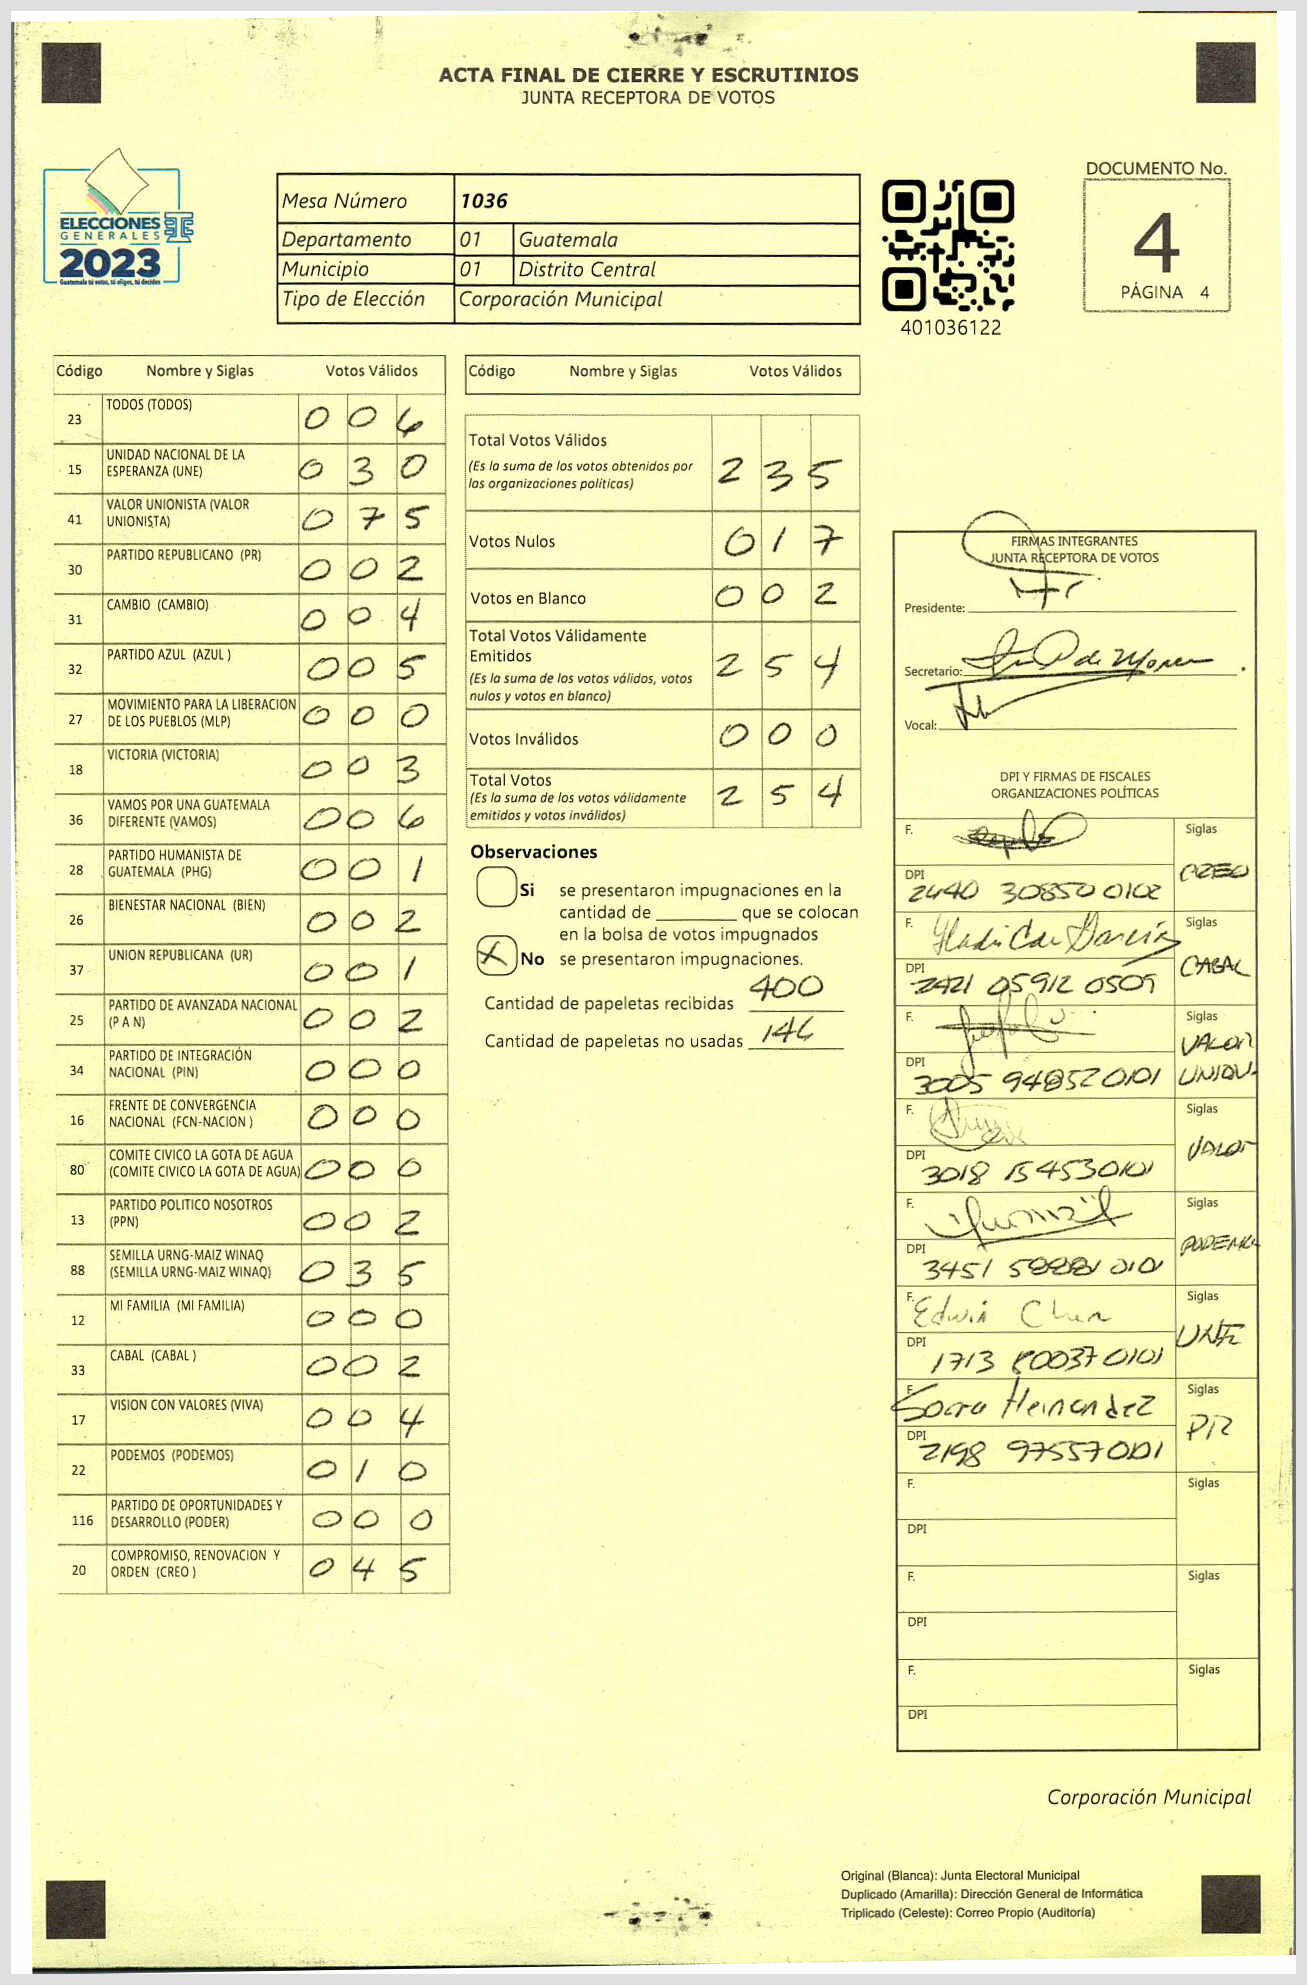 ACTA FINAL DE CIERRE Y ESCRUTINIOS
JUNTA RECEPTORA DE VOTOS
ELECCIONES
GENERALES
2023
Guatemala tú votas, tú eliges, tú decides
Mesa Número 1036
Departamento 01 Guatemala
Municipio 01 Distrito Central
Tipo de Elección Corporación Municipal
401036122
DOCUMENTO No.
4
PÁGINA 4
Código Nombre y Siglas Votos Válidos
23 TODOS (TODOS) 0 0 6
15 UNIDAD NACIONAL DE LA
ESPERANZA (UNE) 0 3 0
41 VALOR UNIONISTA (VALOR
UNIONISTA) 0 7 5
30 PARTIDO REPUBLICANO (PR) 0 0 2
31 CAMBIO (CAMBIO) 0 0 4
32 PARTIDO AZUL (AZUL ) 0 0 5
27 MOVIMIENTO PARA LA LIBERACION
DE LOS PUEBLOS (MLP) 0 0 0
18 VICTORIA (VICTORIA) 0 0 3
36 VAMOS POR UNA GUATEMALA
DIFERENTE (VAMOS) 0 0 6
28 PARTIDO HUMANISTA DE
GUATEMALA (PHG) 0 0 1
26 BIENESTAR NACIONAL (BIEN) 0 0 2
37 UNION REPUBLICANA (UR) 0 0 1
25 PARTIDO DE AVANZADA NACIONAL
(P A N) 0 0 2
34 PARTIDO DE INTEGRACIÓN
NACIONAL (PIN) 0 0 0
16 FRENTE DE CONVERGENCIA
NACIONAL (FCN-NACION ) 0 0 0
80 COMITE CIVICO LA GOTA DE AGUA
(COMITE CIVICO LA GOTA DE AGUA) 0 0 0
13 PARTIDO POLITICO NOSOTROS
(PPN) 0 0 2
88 SEMILLA URNG-MAIZ WINAQ
(SEMILLA URNG-MAIZ WINAQ) 0 3 5
12 MI FAMILIA (MI FAMILIA) 0 0 0
33 CABAL (CABAL ) 0 0 2
17 VISION CON VALORES (VIVA) 0 0 4
22 PODEMOS (PODEMOS) 0 1 0
116 PARTIDO DE OPORTUNIDADES Y
DESARROLLO (PODER) 0 0 0
20 COMPROMISO, RENOVACION Y
ORDEN (CREO ) 0 4 5
Código Nombre y Siglas Votos Válidos
Total Votos Válidos
(Es la suma de los votos obtenidos por
las organizaciones políticas) 2 3 5
Votos Nulos 0 1 7
Votos en Blanco 0 0 2
Total Votos Válidamente
Emitidos 2 5 4
(Es la suma de los votos válidos, votos
nulos y votos en blanco)
Votos Inválidos 0 0 0
Total Votos 2 5 4
(Es la suma de los votos válidamente
emitidos y votos inválidos)
Observaciones
Si se presentaron impugnaciones en la
cantidad de ________ que se colocan
en la bolsa de votos impugnados
X No se presentaron impugnaciones.
Cantidad de papeletas recibidas 400
Cantidad de papeletas no usadas 146
FIRMAS INTEGRANTES
JUNTA RECEPTORA DE VOTOS
Presidente:
Secretario:
Vocal:
DPI Y FIRMAS DE FISCALES
ORGANIZACIONES POLÍTICAS
F. Siglas
CREO
DPI
2440 30850 0102
F. Siglas
CABAL
DPI
2421 05912 0509
F. Siglas
VALOR
UNION.
DPI
3005 94852 0101
F. Siglas
VALOR
DPI
3018 15453 0101
F. Siglas
PODEMOS
DPI
3451 58881 0101
F. Edwin Chen Siglas
UNE
DPI
1713 80037 0101
F. Hernandez Siglas
PR
DPI
2198 97557 0101
F. Siglas
DPI
F. Siglas
DPI
F. Siglas
DPI
Corporación Municipal
Original (Blanca): Junta Electoral Municipal
Duplicado (Amarilla): Dirección General de Informática
Triplicado (Celeste): Correo Propio (Auditoría)